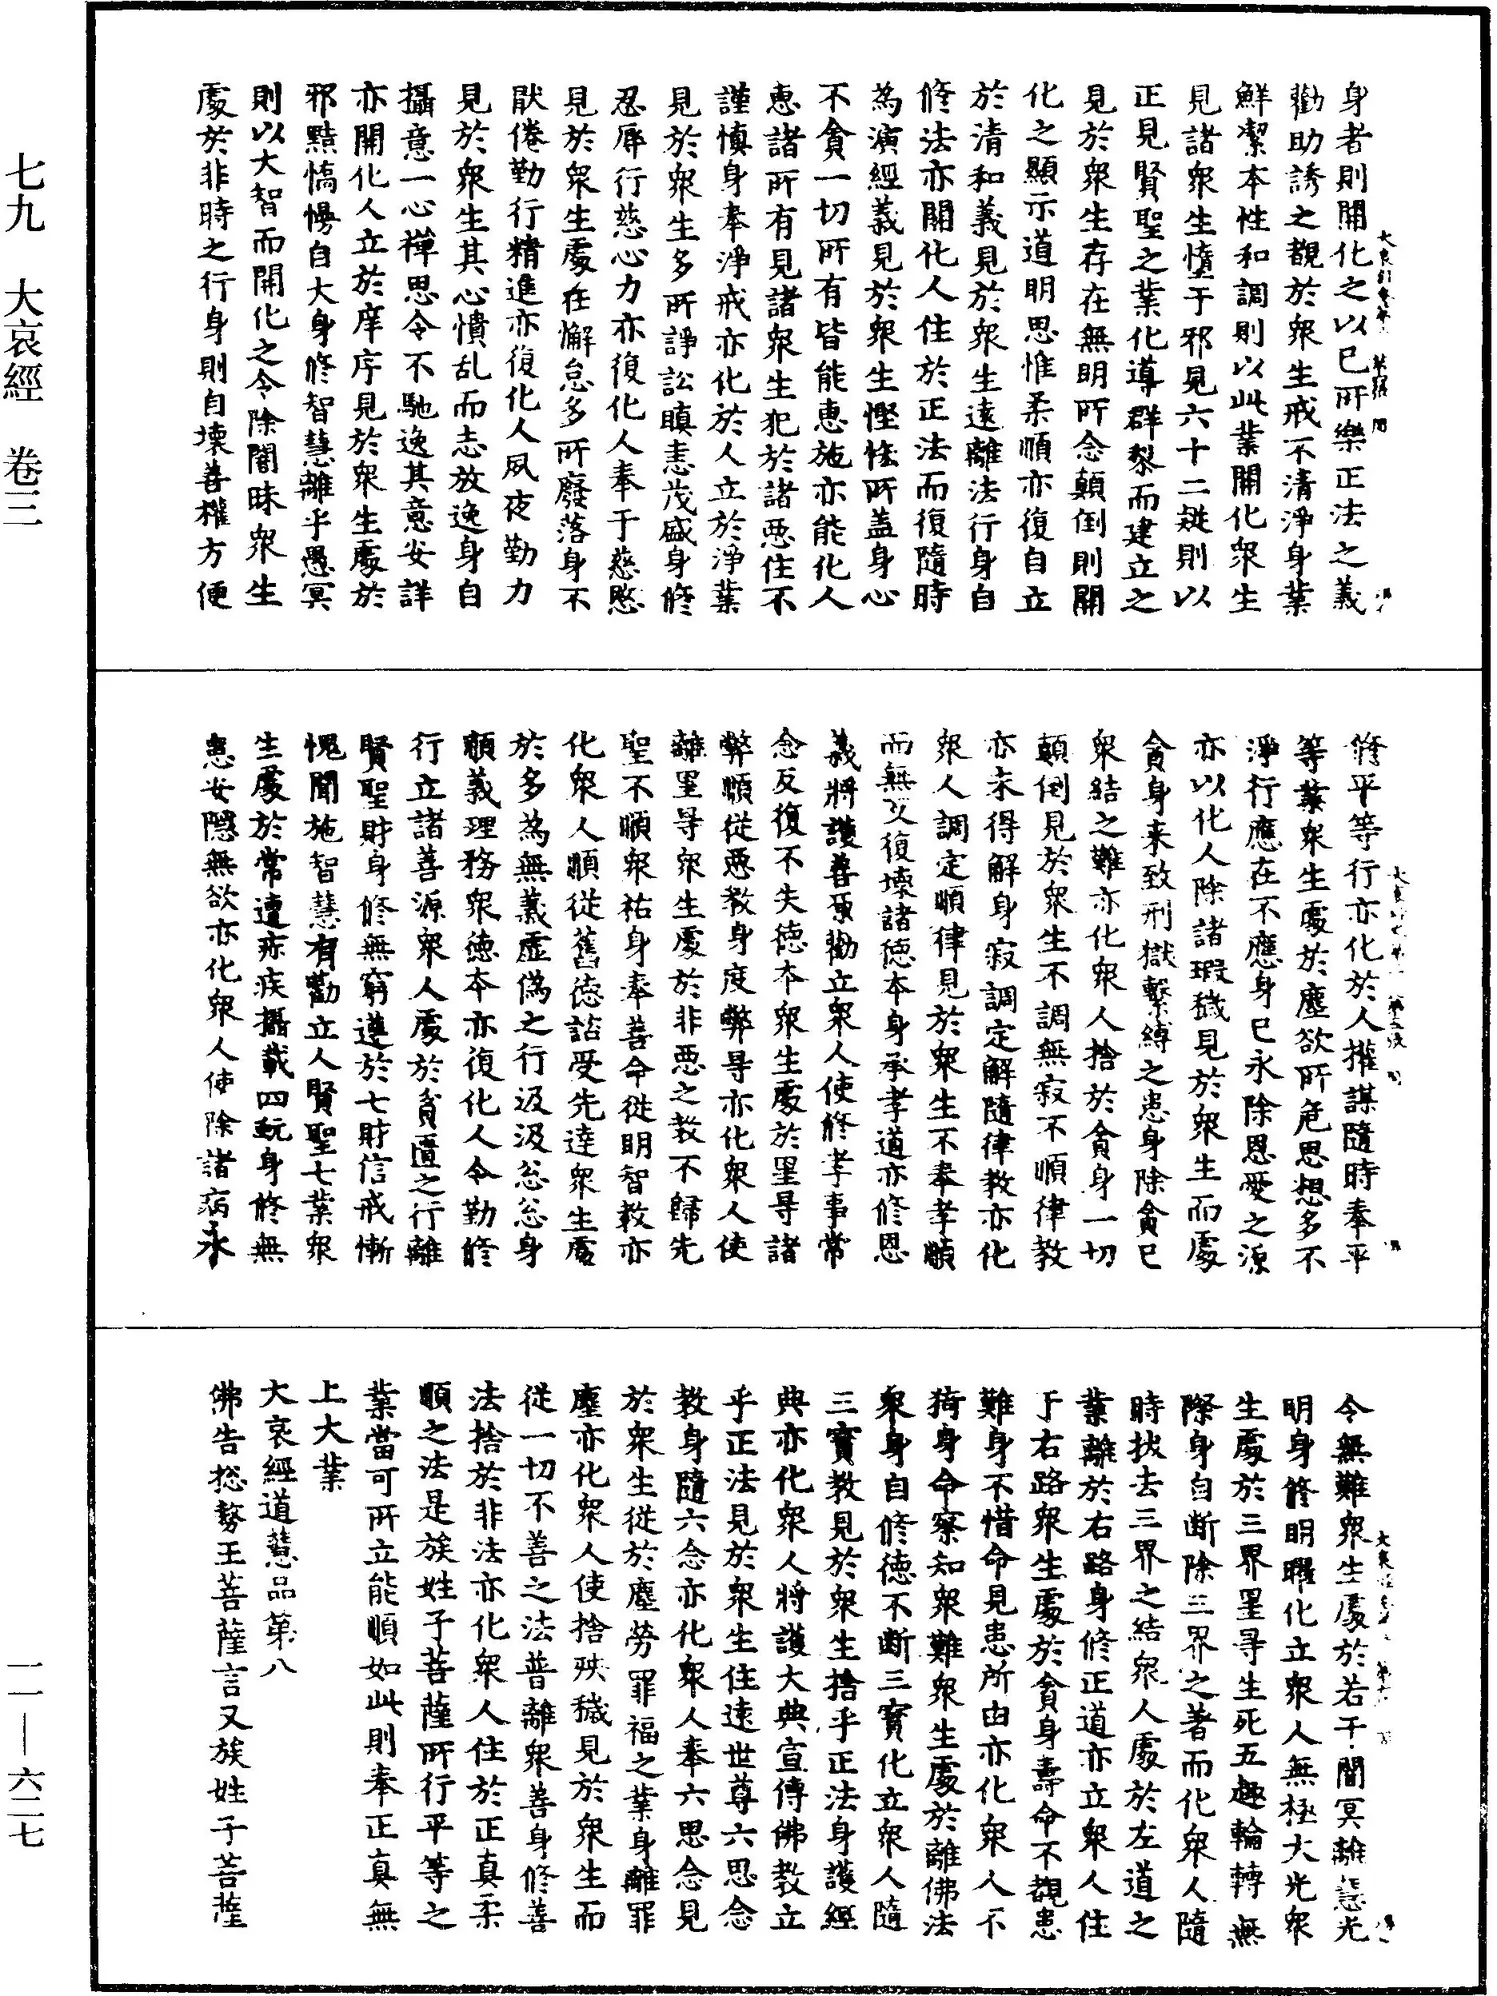 身者則開化之以已所樂正法之義
勸助誘之覩於衆生戒不清淨身業
鮮潔本性和調則以此業開化衆生
見諸衆生墮于邪見六十二疑則以
正見賢聖之業化導群黎而建立之
見於衆生存在無明所念顛倒則開
化之顯示道明思惟柔順亦復自立
於清和義見於衆生遠離法行身自
修法亦開化人住於正法而復隨時
為演經義見於衆生慳恡所蓋身心
不貪一切所有皆能惠施亦能化人
惠諸所有見諸衆生犯於諸惡住不
謹慎身奉淨戒亦化於人立於淨業
見於衆生多所諍訟瞋恚茂盛身修
忍辱行慈心力亦復化人奉于慈愍
見於衆生處在懈怠多所廢落身不
猒倦勤行精進亦復化人夙夜勤力
見於衆生其心憒乱而志放逸身自
攝意一心禪思令不馳逸其意安詳
亦開化人立於庠序見於衆生處於
邪黠憍慢自大身修智慧離乎愚冥
則以大智而開化之令除闇昧衆生
處於非時之行身則自壞善權方便
修平等行亦化於人權謀隨時奉平
等業衆生處於塵欲所危思想多不
淨行應在不應身已永除恩愛之源
亦以化人除諸瑕穢見於衆生而處
貪身来致刑獄繫縛之患身除貪已
衆結之難亦化衆人捨於貪身一切
顛倒見於衆生不調無寂不順律教
亦未得解身寂調定解隨律教亦化
衆人調定順律見於衆生不奉孝順
而無反復壞諸德本身承孝道亦修恩
義將護善原勸立衆人使修孝事常
念反復不失德本衆生處於罣导諸
弊順從惡教身度弊导亦化衆人使
離罣导衆生處於非惡之教不歸先
聖不順衆祐身奉善命從明智教亦
化衆人順從舊德諮受先達衆生處
於多為無義虛偽之行汲汲忩忩身
順義理務衆德本亦復化人令勤修
行立諸善源衆人處於貧匱之行離
賢聖財身修無窮遵於七財信戒慚
愧聞施智慧有勸立人賢聖七業衆
生處於常遭疾疾攝載四蚖身修無
患安隱無欲亦化衆人使除諸病永
令無難衆生處於若干闇冥離慧光
明身修明曜化立衆人無極大光衆
生處於三界罣导生死五趣輪轉無
際身自斷除三界之著而化衆人隨
時抆去三界之結衆人處於左道之
業離於右路身修正道亦立衆人住
于右路衆生處於貪身壽命不覩患
難身不惜命見患所由亦化衆人不
猗身命察知衆難衆生處於離佛法
衆身自修德不斷三寶化立衆人隨
三寶教見於衆生捨乎正法身護經
典亦化衆人將護大典宣傳佛教立
乎正法見於衆生住遠世尊六思念
教身隨六念亦化衆人奉六思念見
於衆生從於塵勞罪福之業身離罪
塵亦化衆人使捨殃穢見於衆生而
從一切不善之法普離衆善身修善
法捨於非法亦化衆人住於正真柔
順之法是族姓子菩薩所行平等之
業當可所立能順如此則奉正真無
上大業
大哀經道慧品第八
佛告捴勢王菩薩言又族姓子菩薩
七九　大哀經　卷三
一一—六二七